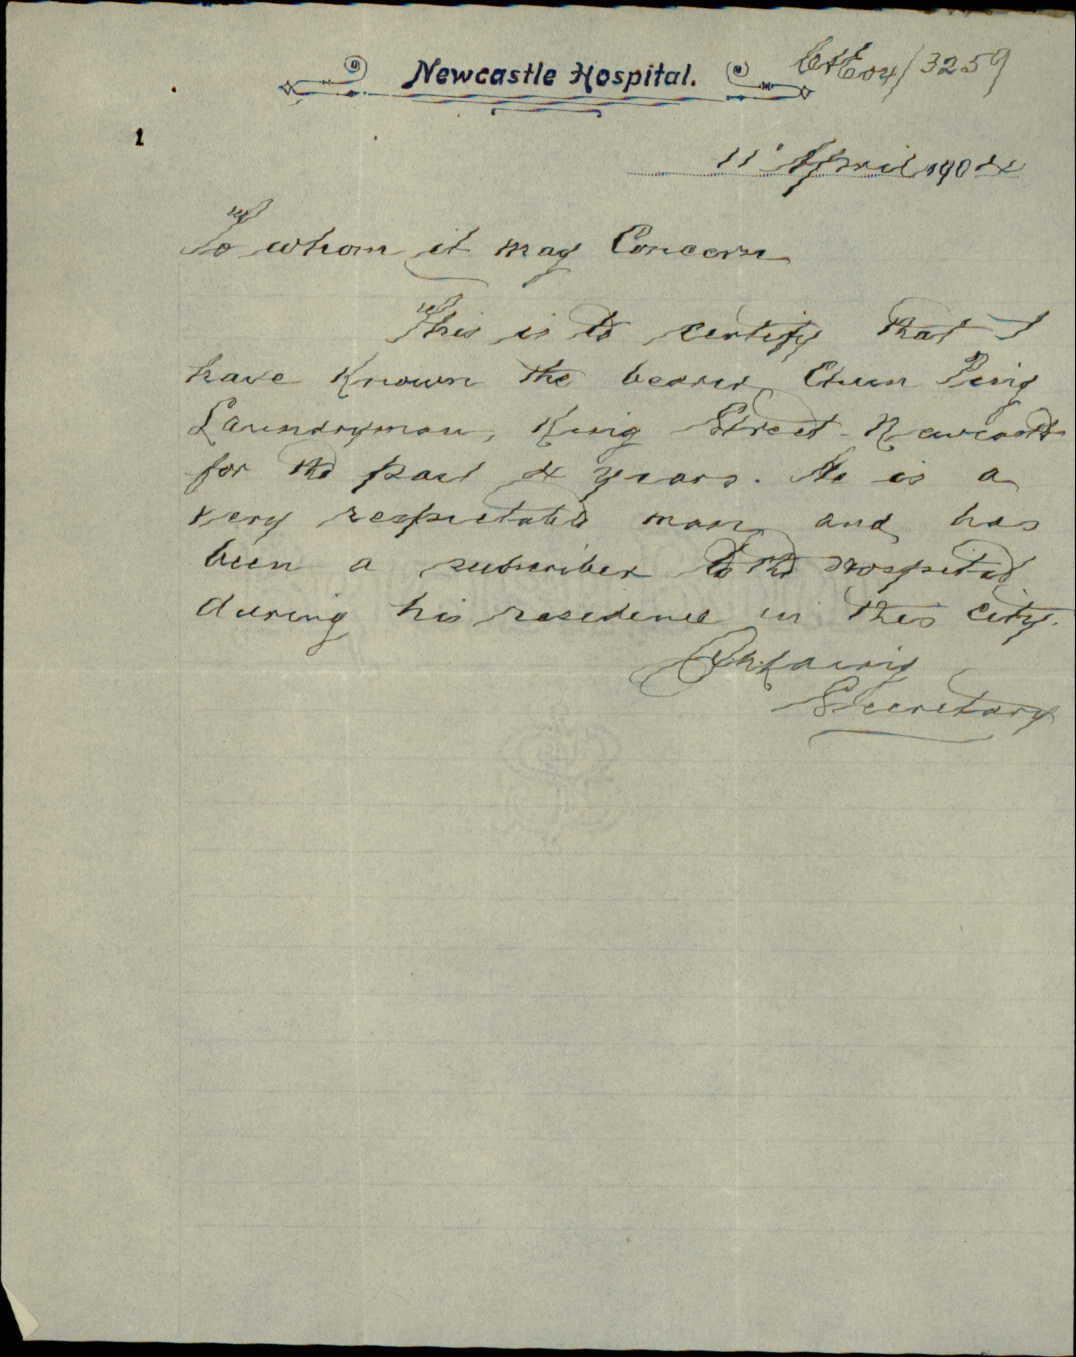 Newcastle Hospital.
C&E 04/3259
1
11' April 1904
To whom it may Concern
This is to certify that I
have Known the bearer Chun Ping
Laundryman, King Street Newcastle
for the past 4 years. He is a
very respectable man and has
been a subscriber to the Hospital
during his residence in this city.
Secretary